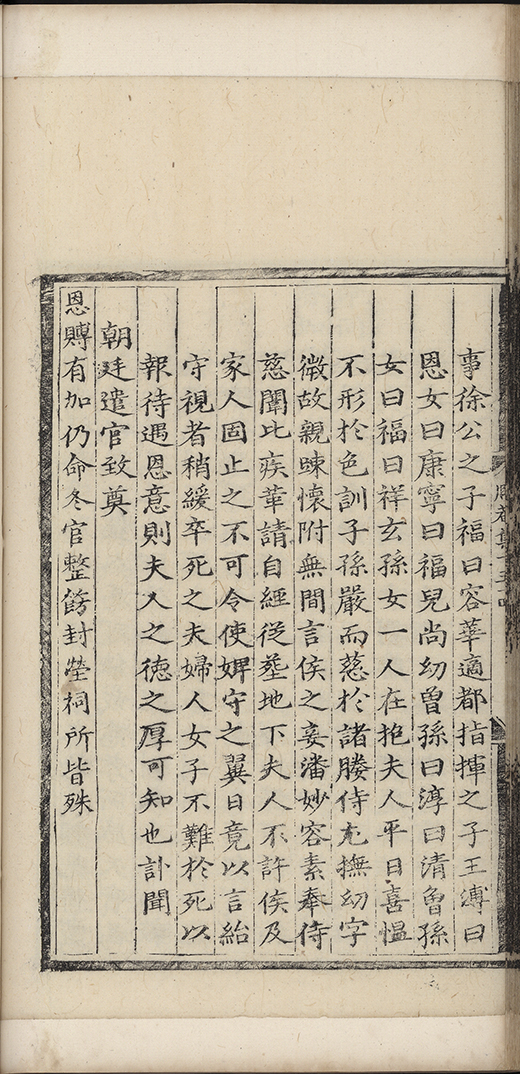 事徐公之子福曰容華適都指揮之子王溥曰
恩女曰康寧曰福兒尚幼曾孫曰淳曰清曾孫
女曰福曰祥玄孫女一人在抱夫人平日喜慍
不形於色訓子孫嚴而慈於諸媵侍尤撫幼字
微故親疎懷附無間言侯之妾潘妙容素奉侍
慈闈比疾革請自經從葬地下夫人不許侯及
家人固止之不可令使婢守之翼日竟以言紿
守視者稍緩卒死之夫婦人女子不難於死以
報待遇恩意則夫人之德之厚可知也訃聞
朝廷遣官致奠
恩賻有加仍命冬官整飭封塋祠所皆殊